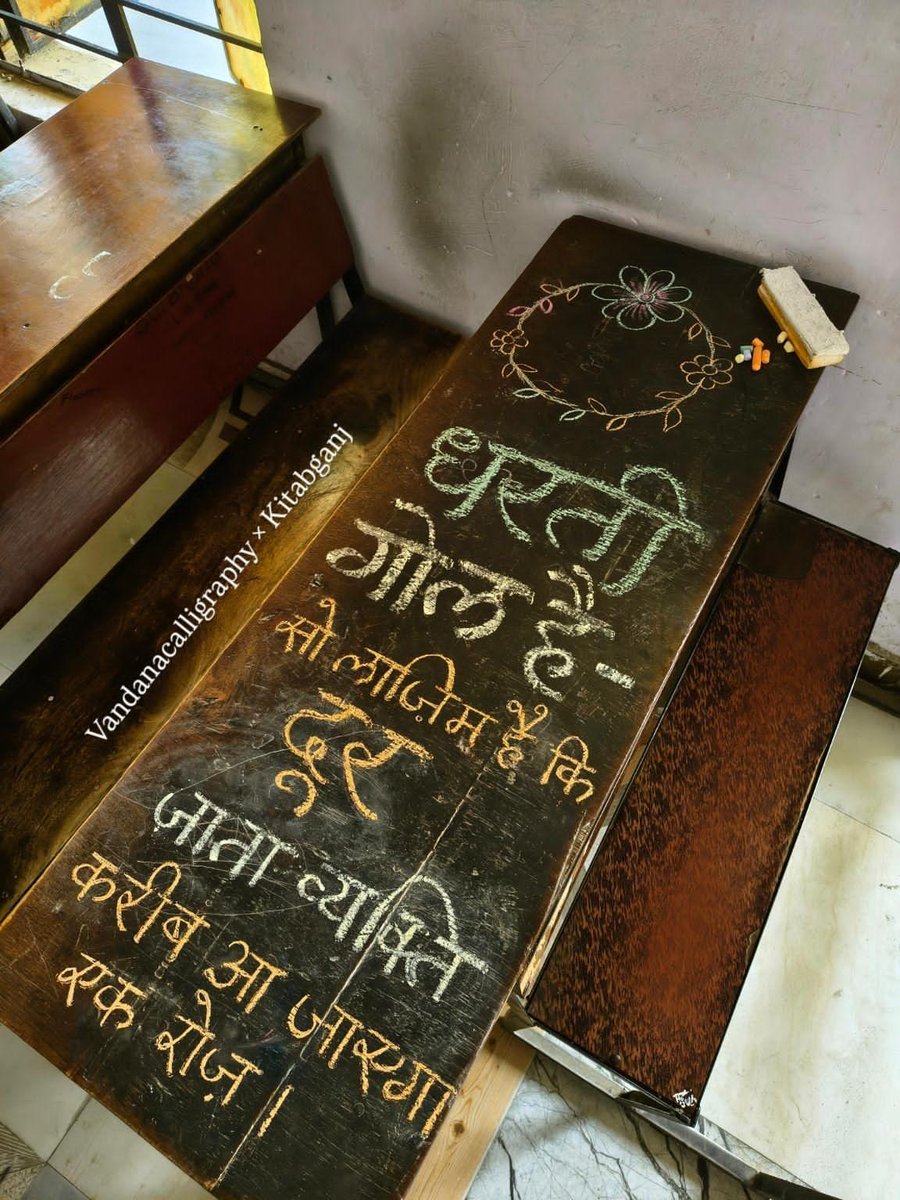 धरती
गोल है-
सो लाज़िम है कि
दूर
जाता व्यक्ति
करीब आ जाएगा
एक रोज़।
Vandanacalligraphy × Kitabganj